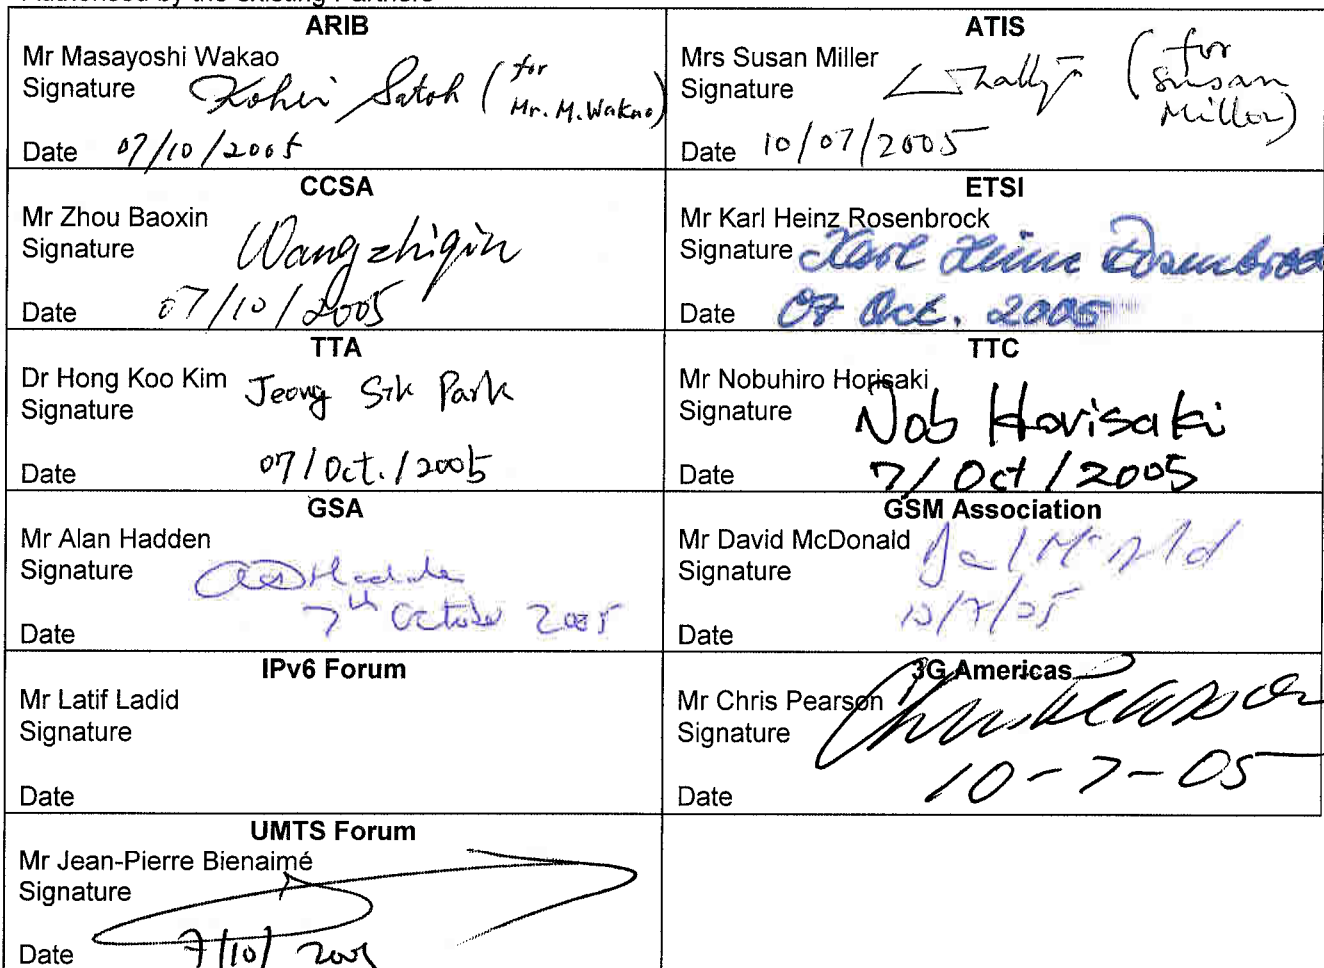 Authorised by the existing Partners
ARIB
Mr Masayoshi Wakao
Signature Kohei Satoh (for
Mr. M. Wakao)
Date 07/10/2005
ATIS
Mrs Susan Miller
Signature (for
Susan
Miller)
Date 10/07/2005
CCSA
Mr Zhou Baoxin
Signature Wang zhiqin
Date 07/10/2005
ETSI
Mr Karl Heinz Rosenbrock
Signature Karl Heinz Rosenbrock
Date 07 Oct. 2005
TTA
Dr Hong Koo Kim
Signature Jeong Sik Park
Date 07/Oct./2005
TTC
Mr Nobuhiro Horisaki
Signature Nob Horisaki
Date 7/Oct/2005
GSA
Mr Alan Hadden
Signature
7th October 2005
Date
GSM Association
Mr David McDonald
Signature
10/7/05
Date
IPv6 Forum
Mr Latif Ladid
Signature
Date
3G Americas
Mr Chris Pearson
Signature Chris Pearson
Date 10-7-05
UMTS Forum
Mr Jean-Pierre Bienaimé
Signature
Date 7/10/2005